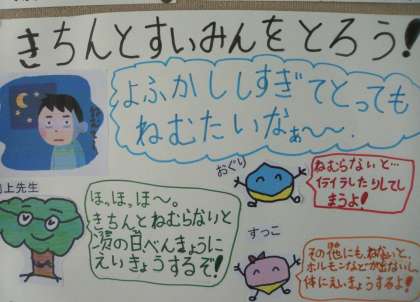 きちんとすいみんをとろう!
よふかししすぎてとっても
ねむたいなぁ〜〜.
上先生
ほっ、ほっ、ほ〜。
きちんとねむらないと
次の日べんきょうに
えいきょうするぞ!
おぐり
ねむらないと…
イライラしたりしてし
まうよ!
すっこ
その他にも、ねないと、
ホルモンなどが出ないし
体にえいきょうするよ!